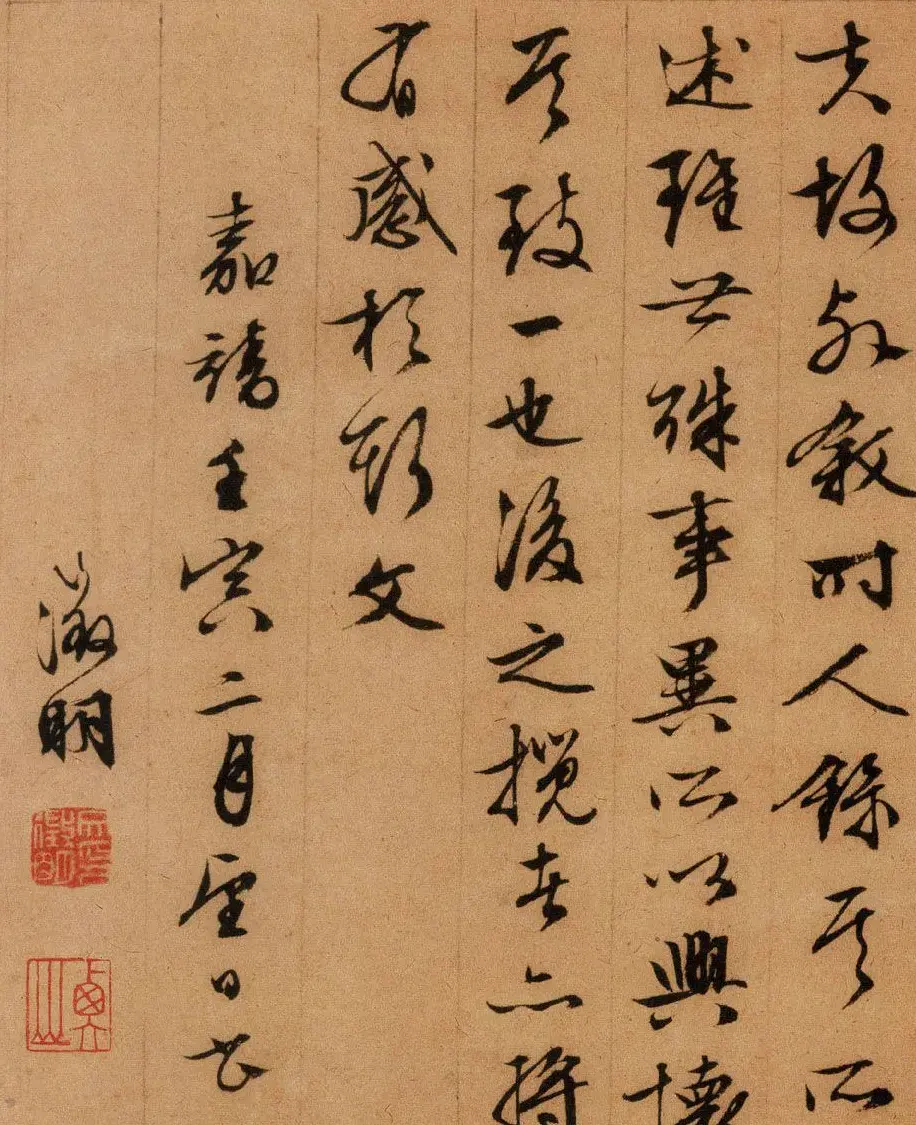 夫故列敘時人錄其所
述雖世殊事異所以興懷
其致一也後之攬者亦將
有感於斯文
嘉靖壬寅二月望日書
徵明